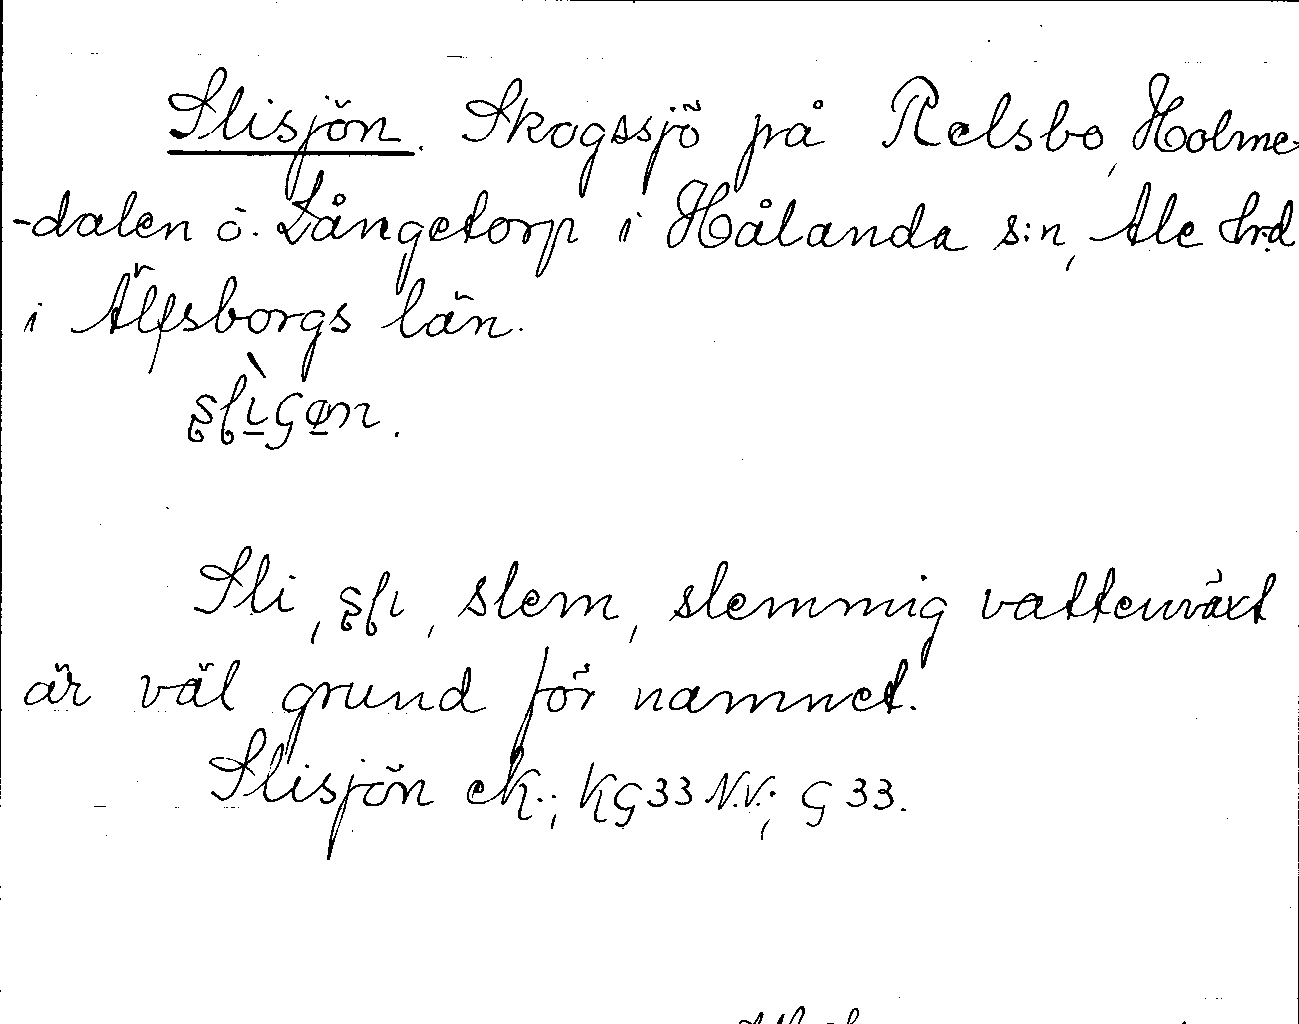 Slisjön. Skogssjö på Relsbo, Holme-
-dalen o. Långetorp i Hålanda s:n, Ale hrd
i Älfsborgs län.
Sli, slem, slemmig vattenväxt
är väl grund för namnet.
Slisjön ek.; KG33 N.V.; G 33.